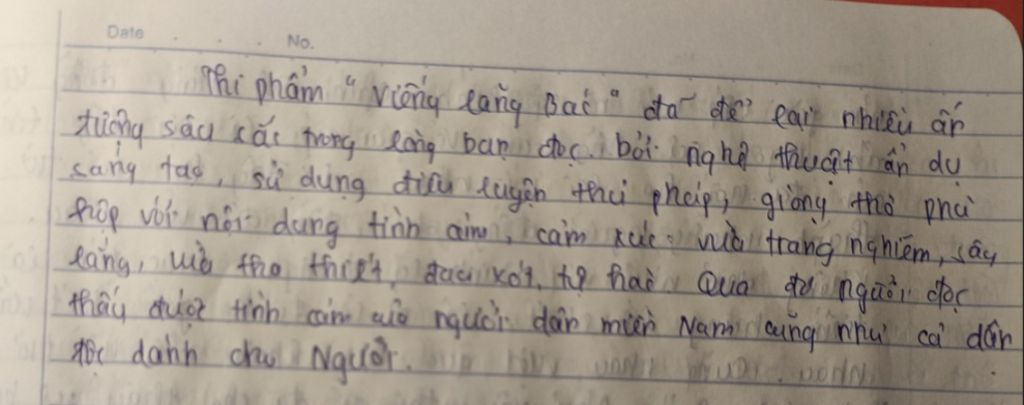 Date No.
Thi phẩm "Viếng lăng Bác" đã để lại nhiều ấn
tượng sâu sắc trong lòng bạn đọc bởi nghệ thuật ẩn dụ
sáng tạo, sử dụng điêu luyện thủ pháp, giọng thơ phù
hợp với nội dung tình cảm, cảm xúc: vừa trang nghiêm, sâu
lắng, vừa tha thiết, đau xót, tự hào Qua đó người đọc
thấy được tình cảm của người dân miền Nam cũng như cả dân
tộc dành cho Người.